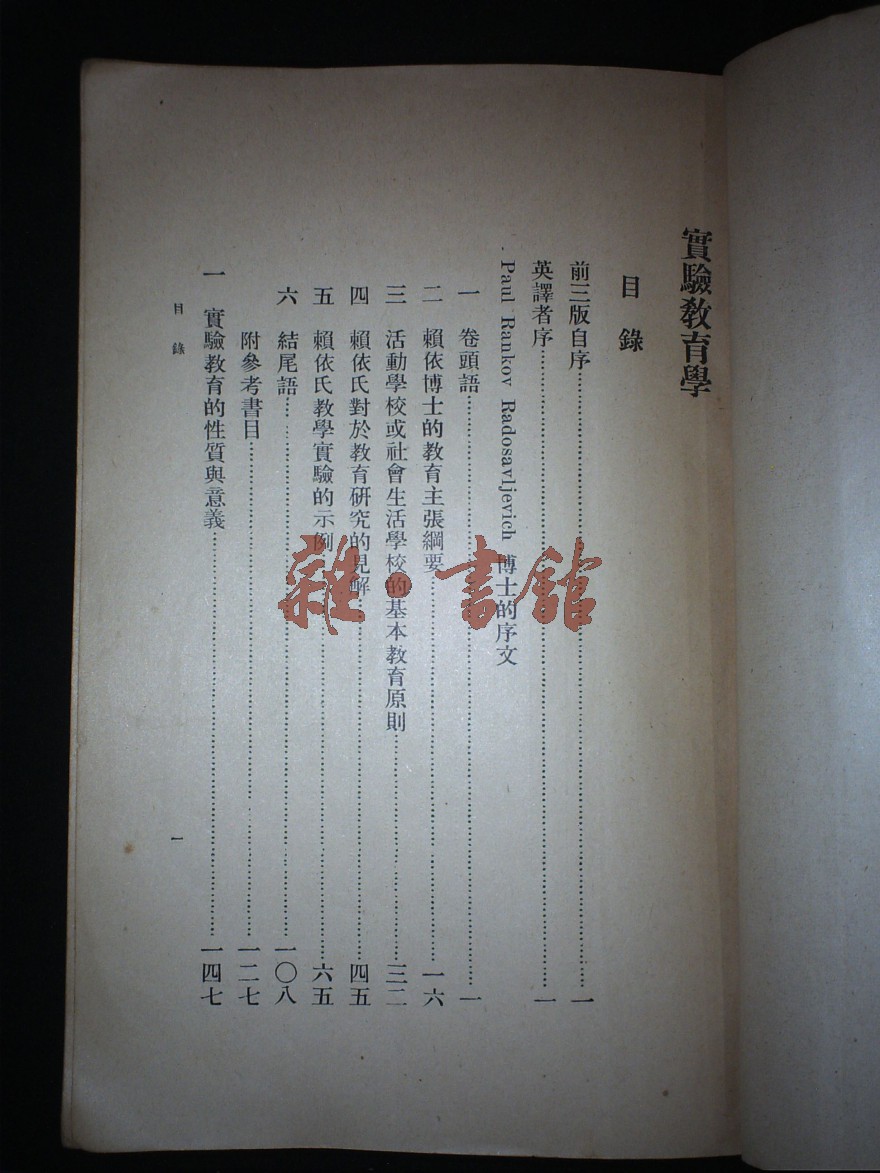 實驗教育學
目錄
前三版自序……一
英譯者序……一
Paul Rankov Radosavljevich 博士的序文
一 卷頭語……一
二 賴依博士的教育主張綱要……一六
三 活動學校或社會生活學校的基本教育原則……三二
四 賴依氏對於教育研究的見解……四五
五 賴依氏教學實驗的示例……六五
六 結尾語……一〇八
附參考書目……一二七
一 實驗教育的性質與意義……一四七
目錄 一
雜·書館